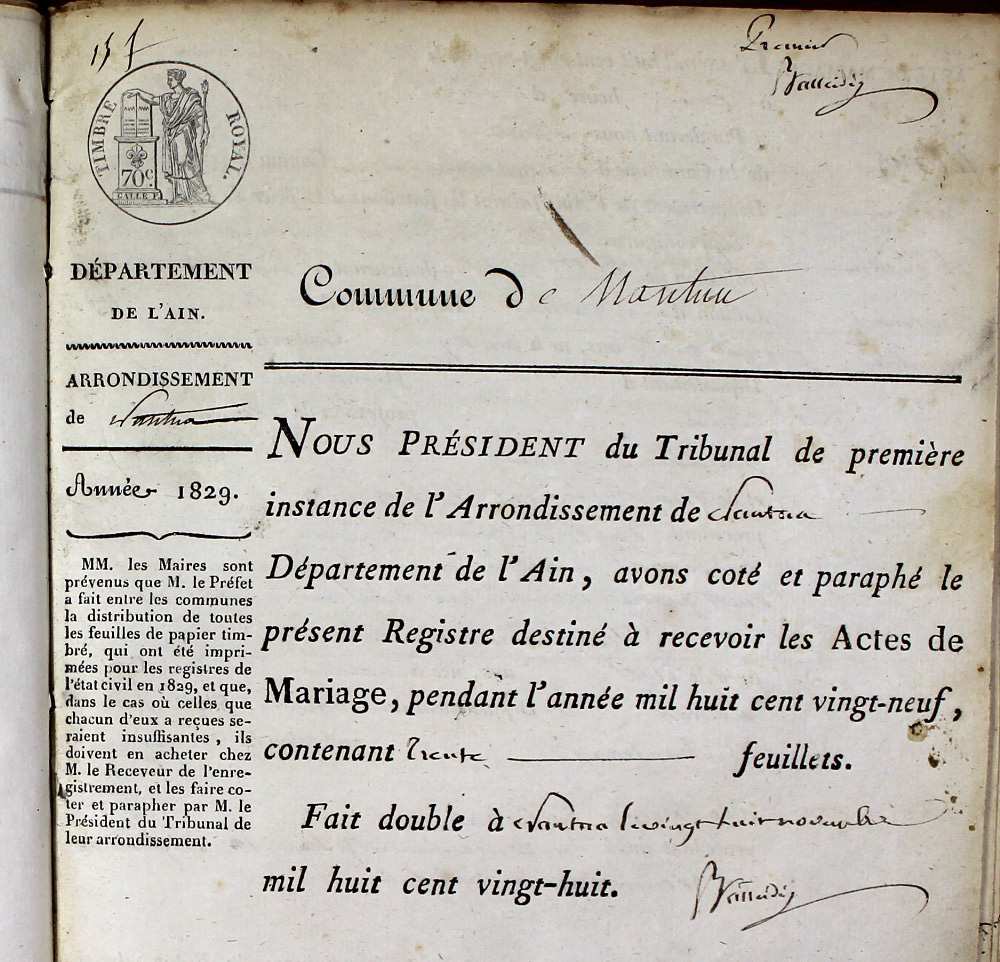 15 f
Premier
TIMBRE ROYAL.
70c.
DÉPARTEMENT
DE L'AIN.
ARRONDISSEMENT
de Nantua
Année 1829.
MM. les Maires sont
prévenus que M. le Préfet
a fait entre les communes
la distribution de toutes
les feuilles de papier tim-
bré, qui ont été impri-
mées pour les registres de
l'état civil en 1829, et que,
dans le cas où celles que
chacun d'eux a reçues se-
raient insuffisantes, ils
doivent en acheter chez
M. le Receveur de l'enre-
gistrement, et les faire co-
ter et parapher par M. le
Président du Tribunal de
leur arrondissement.
Commune de Nantua
NOUS PRÉSIDENT du Tribunal de première
instance de l'Arrondissement de Nantua
Département de l'Ain, avons coté et paraphé le
présent Registre destiné à recevoir les Actes de
Mariage, pendant l'année mil huit cent vingt-neuf,
contenant trente feuillets.
Fait double à Nantua le vingt huit novembre
mil huit cent vingt-huit.